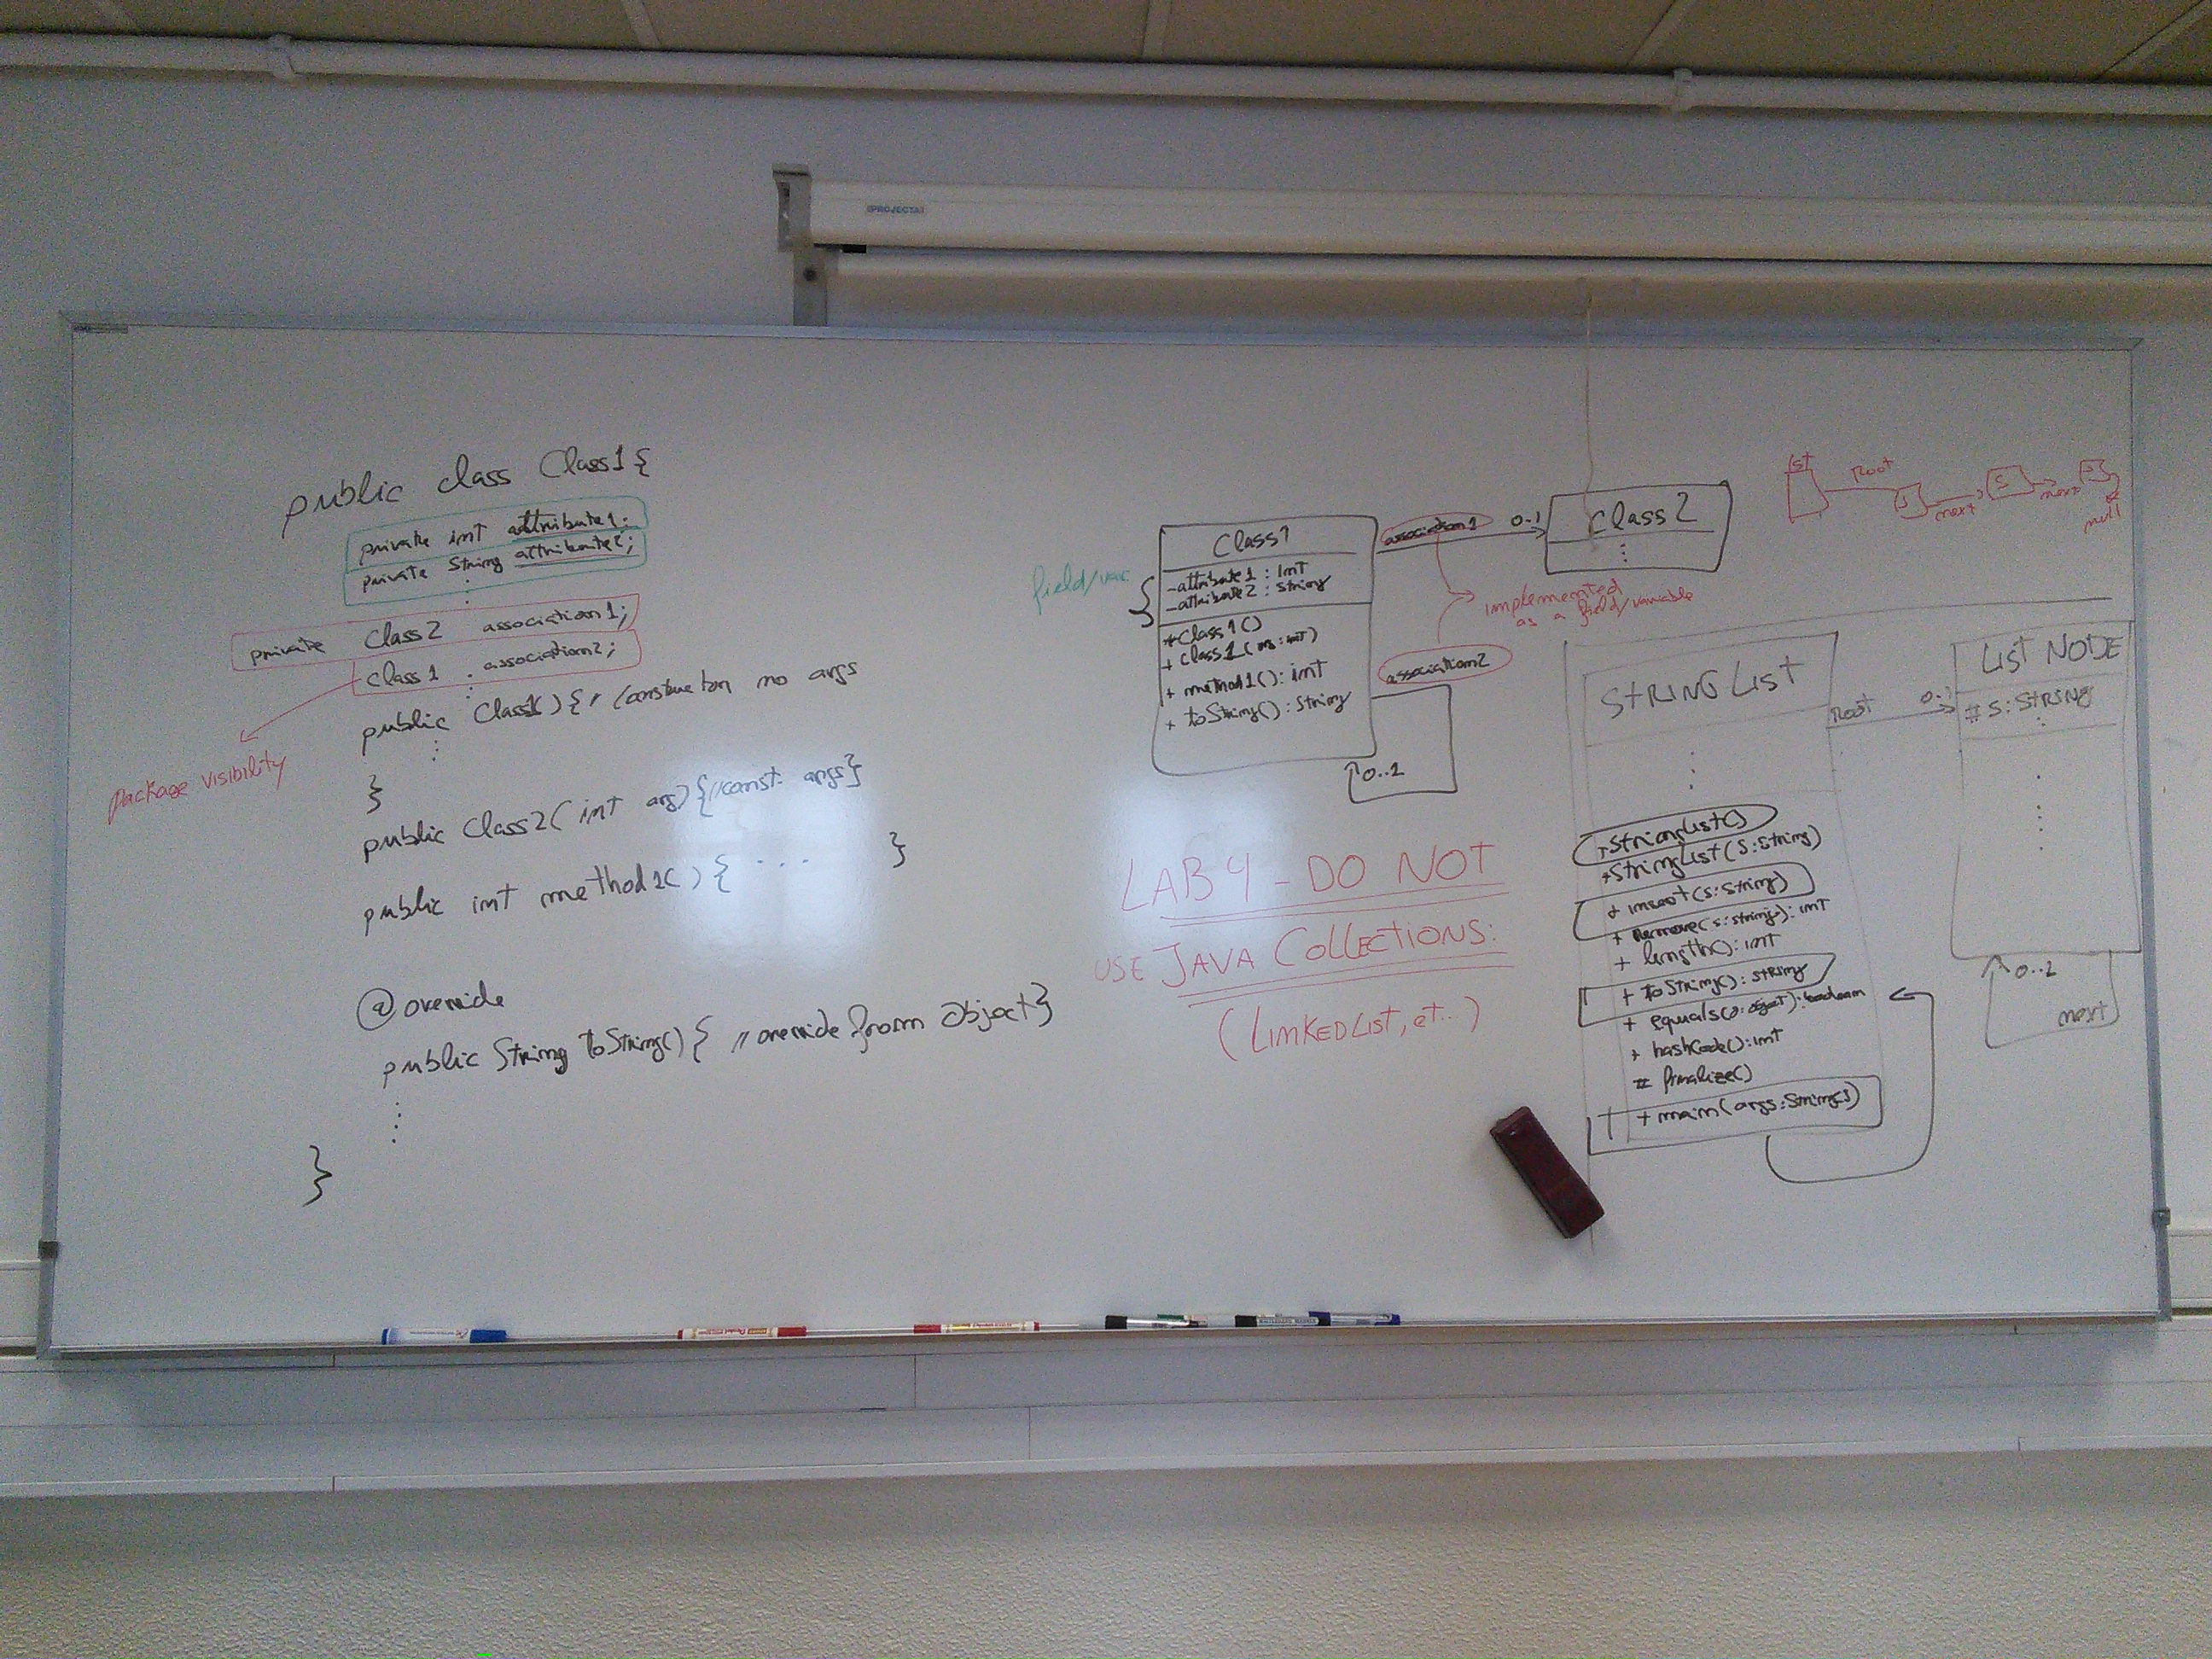 PROJECTA
public class Class1 {
private int attribute1;
private String attribute2;
private Class2 association1;
Class1 association2;
package visibility
public Class1() { // Constructor no args
}
public Class2( int arg) { //const. args}
public int method1() { ... }
@override
public String toString() { // override from Object }
}
field/var
Class1
-attribute1 : int
-attribute2 : String
+Class1()
+ Class1( : int)
+ method1() : int
+ toString() : String
association1 0..1
Class2
implemented
as a field/variable
association2
0..1
LAB 4 - DO NOT
USE JAVA COLLECTIONS:
(LINKEDLIST, et..)
Root
next
next
null
STRING LIST
Root 0..1
LIST NODE
# S: STRING
+StringList()
+StringList(S:String)
+ insert(s:String)
+ remove(s:string): int
+ length(): int
+ toString(): STRING
+ equals(o:object): boolean
+ hashCode(): int
# finalize()
+ main(args:String[])
0..1
next